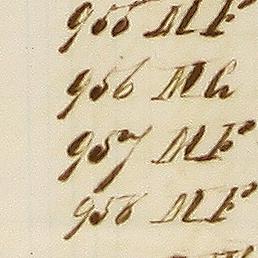 955 M F
956 M C
957 M F
958 M F